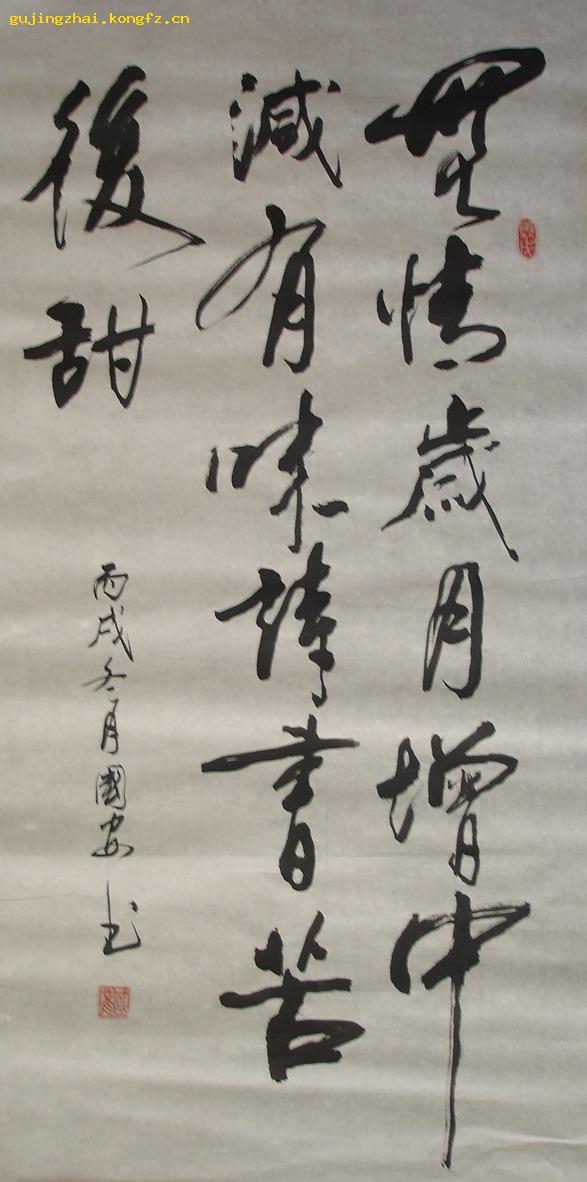 gujingzhai.kongfz.cn
無情歲月增中
減有味詩書苦
後甜
丙戌冬月國安书